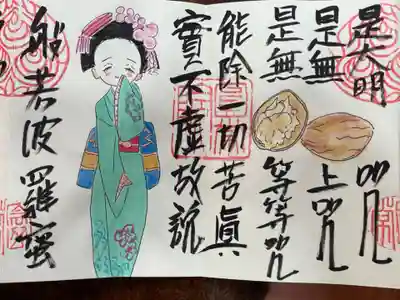 是大明咒
是無上咒
是無等等咒
能除一切苦真
實不虛故説
般若波羅蜜